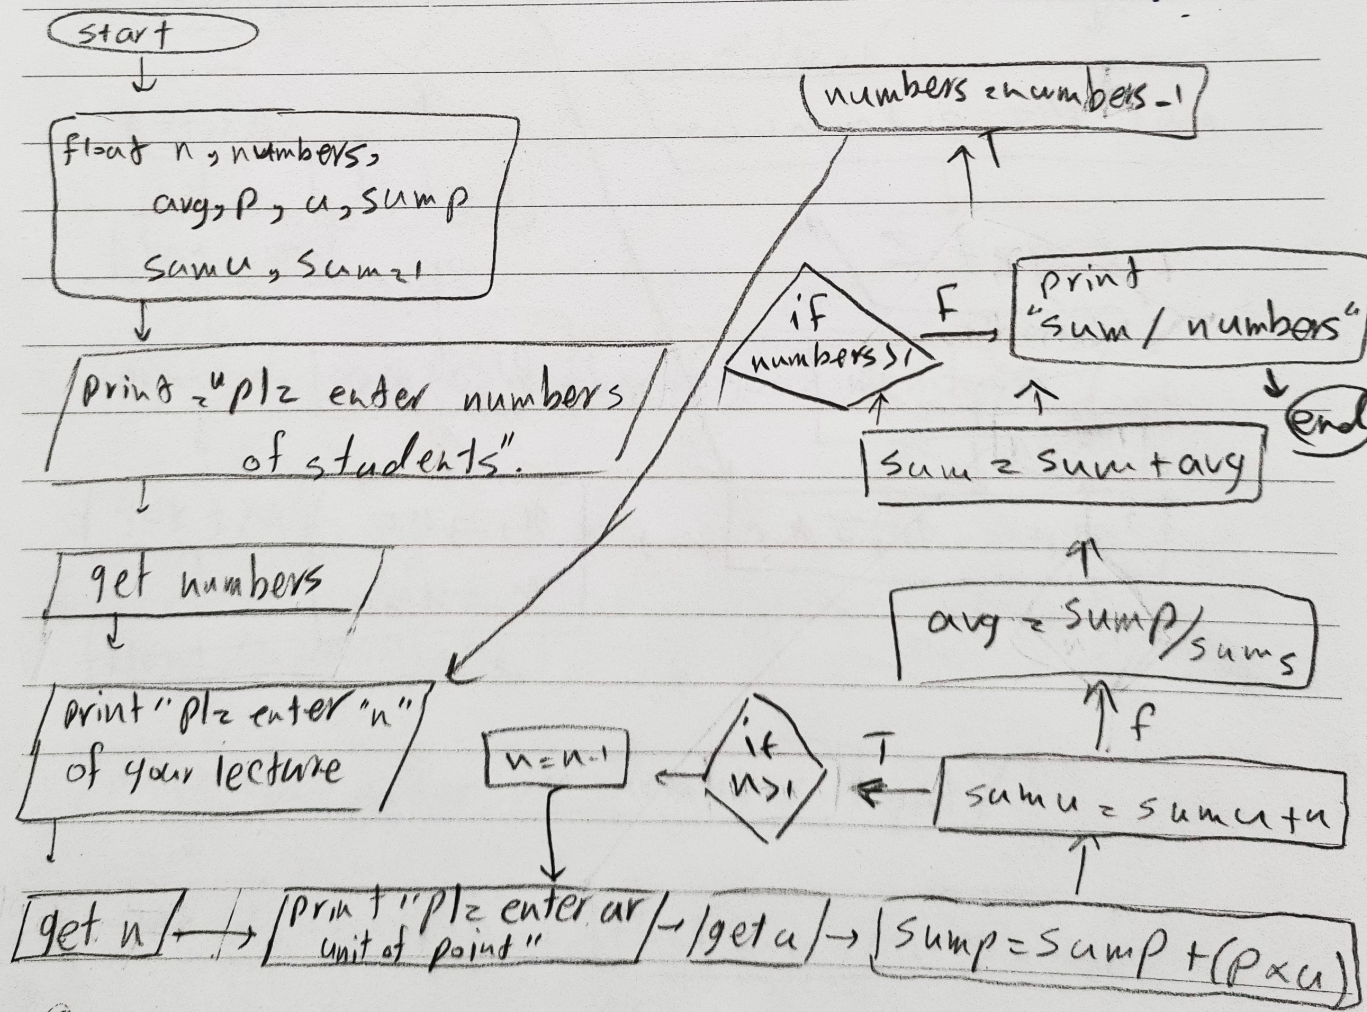 start
float n, numbers,
avg, p, u, sump
sumu, sum=1
print ="plz enter numbers
of students".
get numbers
print "plz enter "n"
of your lecture
get n
print "plz enter ar
unit of point"
get u
sump = sump + (p×u)
sumu = sumu + u
T
f
if
n>1
n=n-1
avg = sump/sums
sum = sum + avg
if
numbers>1
F
print
"sum / numbers"
end
T
numbers = numbers - 1